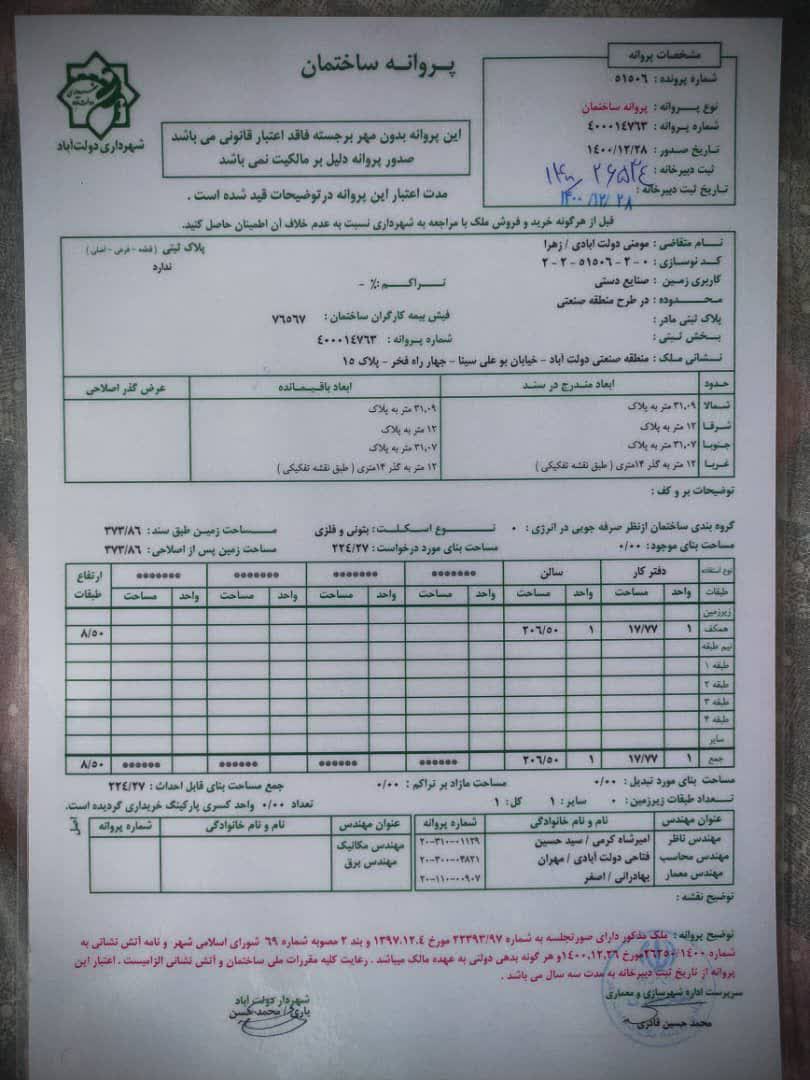 پـروانـه ساختمان
شهرداری دولت‌آباد
این پروانه بدون مهر برجسته فاقد اعتبار قانونی می باشد
صدور پروانه دلیل بر مالکیت نمی باشد
مدت اعتبار این پروانه درتوضیحات قید شده است .
مشخصات پروانه
شماره پرونده : ۵۱۵۰۶
نوع پـــروانه : پروانه ساختمان
شماره پروانه : ۴۰۰۰۱۴۷۶۳
تـاریخ صـدور : ۱۴۰۰/۱۲/۲۸
ثبت دبیرخانه : ۲۶۵۳۴
تاریخ ثبت دبیرخانه : ۱۴۰۰/۱۲/۲۸
قبل از هرگونه خرید و فروش ملک با مراجعه به شهرداری نسبت به عدم خلاف آن اطمینان حاصل کنید.
نـــام متقاضی : مومنی دولت ابادی / زهرا
پلاک ثبتی ( قطعه - فرعی - اصلی )
کـد نوسازی : ۰ - ۲ - ۵۱۵۰۶ - ۲ - ۲
ندارد
کاربری زمین : صنایع دستی
تـراکـــم :% -
محـــدوده : در طرح منطقه صنعتی
پلاک ثبتی مادر :
فیش بیمه کارگران ساختمان : ۷۶۵۶۷
بـخش ثبـتی :
شماره پـروانه : ۴۰۰۰۱۴۷۶۳
نـشانی ملـک : منطقه صنعتی دولت آباد - خیابان بو علی سینا - چهار راه فخر - پلاک ۱۵
حـدود ابعاد مندرج در سـند ابعاد باقیـمانده عرض گذر اصلاحی
شـمالا ۳۱.۰۹ متر به پلاک ۳۱.۰۹ متر به پلاک
شـرقـا ۱۲ متر به پلاک ۱۲ متر به پلاک
جنوبـا ۳۱.۰۷ متر به پلاک ۳۱.۰۷ متر به پلاک
غـربـا ۱۲ متر به گذر ۱۴متری ( طبق نقشه تفکیکی ) ۱۲ متر به گذر ۱۴متری ( طبق نقشه تفکیکی )
توضیحات بر و کف :
گروه بندی ساختمان ازنظر صرفه جویی در انرژی : ۰ نـــوع اسـکلـت : بتونی و فلزی مساحت زمیـن طبق سند : ۳۷۳/۸۶
مساحت بنای موجود: ۰/۰۰ مساحت بنای مورد درخواست : ۲۲۴/۲۷ مساحت زمین پس از اصلاحی: ۳۷۳/۸۶
نوع استفاده دفتر کار سالن ******* ******* ******* ******* ارتفاع طبقات
طبقات واحد مساحت واحد مساحت واحد مساحت واحد مساحت واحد مساحت واحد مساحت
زیرزمین
همکف ۱ ۱۷/۷۷ ۱ ۲۰۶/۵۰ ۸/۵۰
نیم طبقه
طبقه ۱
طبقه ۲
طبقه ۳
طبقه ۴
سایر
جمع ۱ ۱۷/۷۷ ۱ ۲۰۶/۵۰ ****** ****** ****** ****** ۸/۵۰
مساحت بنای مورد تبدیل : ۰/۰۰ مساحت مازاد بر تراکم : ۰/۰۰ جمع مساحت بنای قابل احداث : ۲۲۴/۲۷
تـعداد طبقات زیرزمین : ۰ سـایر : ۱ کل : ۱ تعداد ۰/۰۰ واحد کسری پارکینگ خریداری گردیده است.
عنوان مهندس نام و نام خانوادگی شماره پروانه عنوان مهندس نام و نام خانوادگی شماره پروانه
مهندس ناظر امیرشاه کرمی / سید حسین ۲۰-۳۱۰-۰۱۱۲۹ مهندس مکانیک
مهندس محاسب فتاحی دولت آبادی / مهران ۲۰-۳۰۰-۰۳۸۲۱ مهندس برق
مهندس معمار بهادرانی / اصغر ۲۰-۱۱۰-۰۰۹۰۷
اصل
توضیح نقشه :
توضیح پروانه : ملک مذکور دارای صورتجلسه به شماره ۲۲۳۹۳/۹۷ مورخ ۱۳۹۷.۱۲.۴ و بند ۲ مصوبه شماره ۶۹ شورای اسلامی شهر و نامه آتش نشانی به
شماره ۲۶۲۵۰/۱۴۰۰مورخ ۱۴۰۰.۱۲.۲۶و هر گونه بدهی دولتی به عهده مالک میباشد . رعایت کلیه مقررات ملی ساختمان و آتش نشانی الزامیست . اعتبار این
پروانه از تاریخ ثبت دبیرخانه به مدت سه سال می باشد .
سرپرست اداره شهرسازی و معماری
محمد حسین قادری
شهردار دولت آباد
یاری / محمد حسن